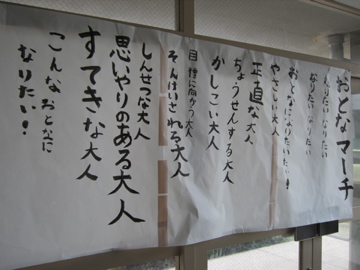 おとなマーチ
なりたいなりたい
なりたいなりたい
おとなになりたいたい!
やさしい大人
正直な大人
ちょうせんする大人
かしこい大人
目標に向かう大人
そんけいされる大人
しんせつな大人
思いやりのある大人
すてきな大人
こんなおとなに
なりたい!